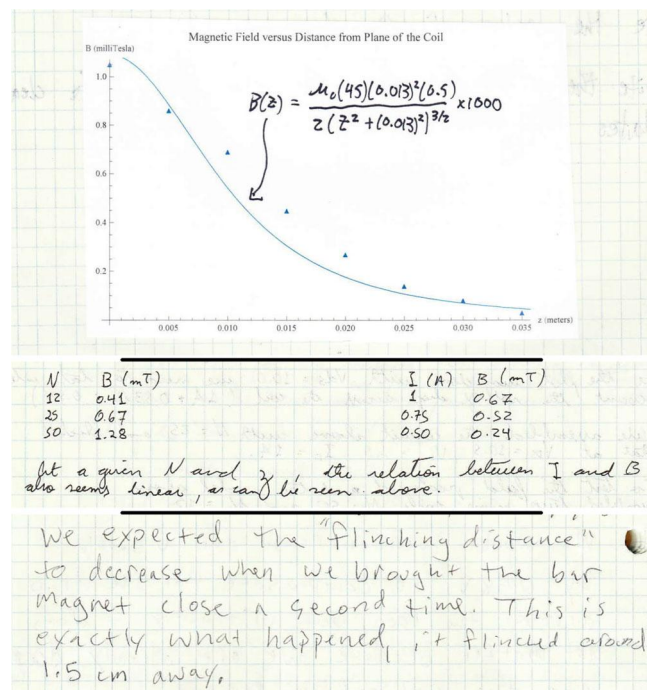 Magnetic Field versus Distance from Plane of the Coil
B (milliTesla)
1.0
0.8
0.6
0.4
0.2
B(z) = μ₀(45)(0.013)²(0.5) / 2(z² + (0.013)²)^3/2 x1000
0.005 0.010 0.015 0.020 0.025 0.030 0.035
z (meters)
N B (mT) I (A) B (mT)
12 0.41 1 0.67
25 0.67 0.75 0.52
50 1.28 0.50 0.24
At a given N and z, the relation between I and B
also seems linear, as can be seen above.
We expected the "flinching distance"
to decrease when we brought the bar
magnet close a second time. This is
exactly what happened, it flinched around
1.5 cm away.